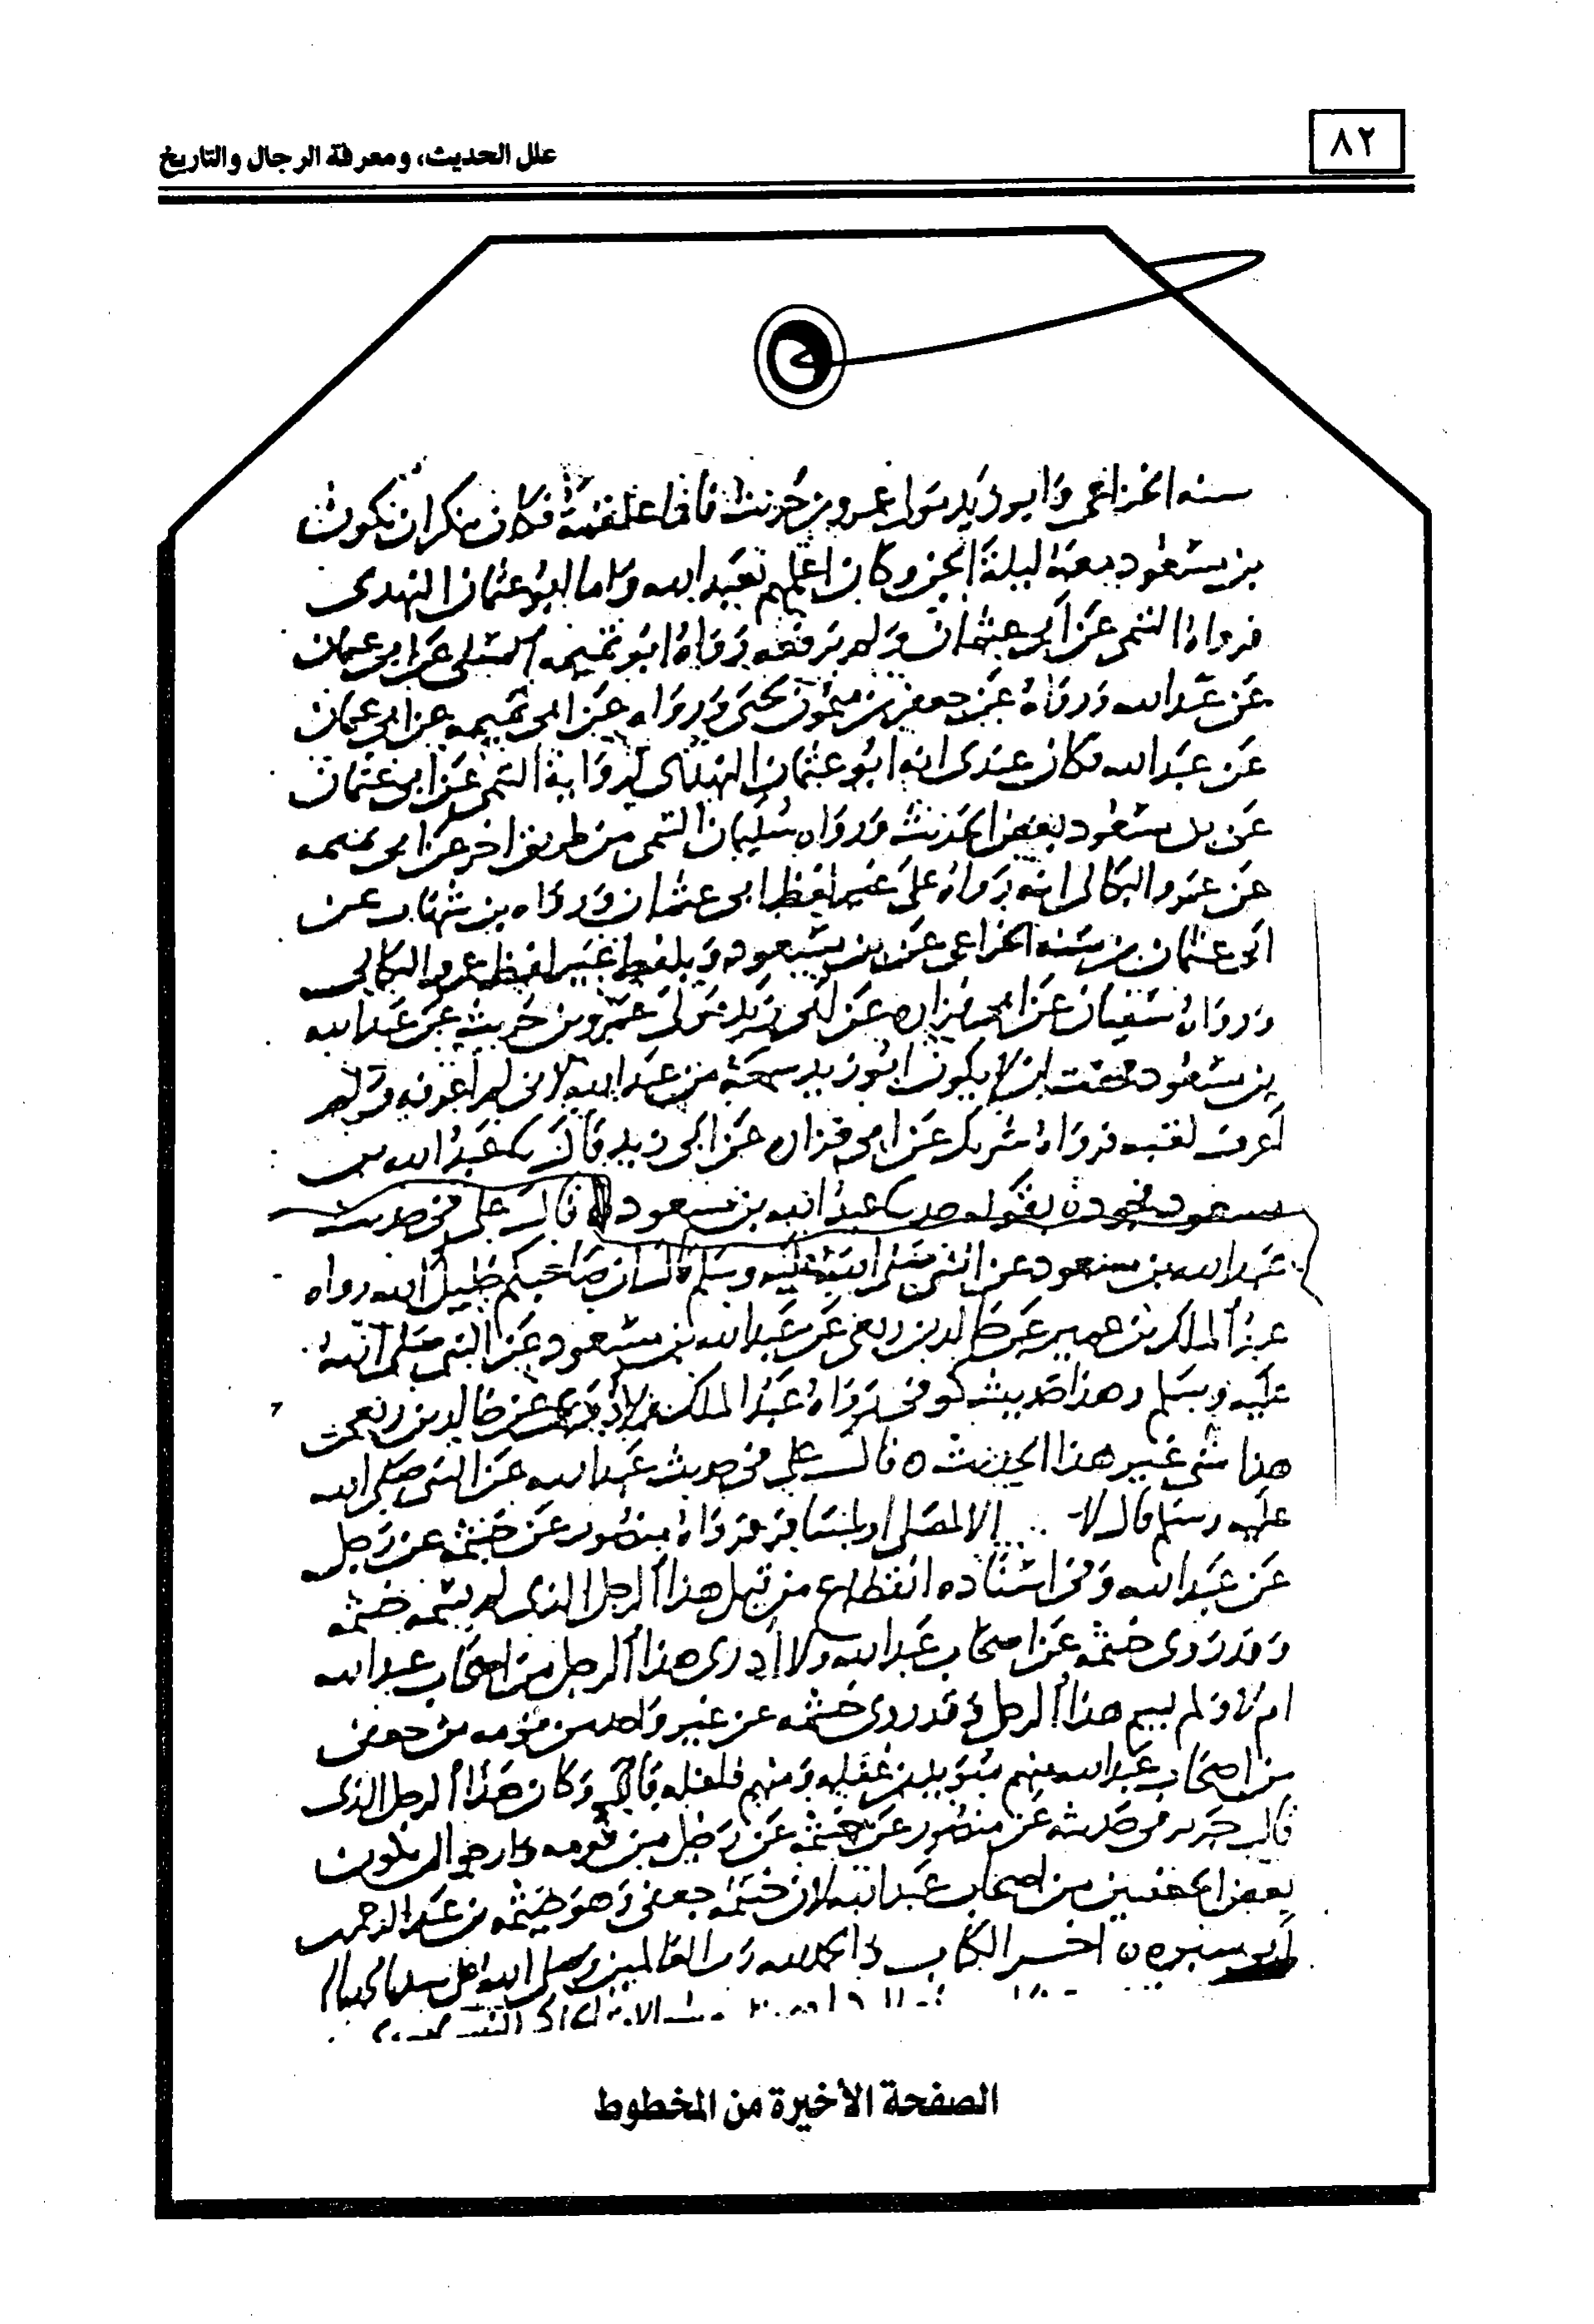 ٨٢
علل الحديث، ومعرفة الرجال والتاريخ
سنه الخزاعي وابو زيد مولى عمرو بن حريث فاما علقمة فكان ينكر ان يكون
بن مسعود معه ليلة الجن وكان اعلمهم بعبد الله واما ابو عثمان النهدى
فرواه التيمى عن ابى عثمان ولم يرفعه ورواه ابو تميمه عن ابى عثمان
عن عبد الله ورواه عن جعفر بن ميمون يحيى ورواه عن ابى تميمه عن ابى عثمان
عن عبد الله فكان عندى انه ابو عثمان النهدى لرواية التيمى عن ابى عثمان
عن بن مسعود بعض الحديث ورواه سليمان التيمى من طريق اخر عن ابى تميمه
عن عمرو البكالى انه رواه على غير لفظ ابى عثمان ورواه بن شهاب عن
ابى عثمان بن سنه الخزاعى عن بن مسعود وبلفظ غير لفظ عمرو البكالى
ورواه سفيان عن ابى فزاره عن ابى زيد مولى عمرو بن حريث عن عبد الله
بن مسعود فخفت ان لا يكون ابو زيد سمعه من عبد الله لانى لم اعرفه ولم
اعرف لقيه فرواه شريك عن ابى فزاره عن ابى زيد قال عبد الله بن
مسعود فجوده بقوله عبد الله بن مسعود ه قال على فى حديث
عبد الله بن مسعود عن النبى صلى الله عليه وسلم قال ان صاحبكم خليل الله رواه
عبد الملك بن عمير عن خالد بن ربعى عن عبد الله بن مسعود عن النبى صلى الله
عليه وسلم وهذا حديث كوفى رواه عبد الملك عن خالد بن ربعى
هذا شى غير هذا الحديث ه قال على فى حديث عبد الله عن النبى صلى الله
عليه وسلم قال لا الا لمصلى او لمسافر فرواه منصور عن خيثمه عن رجل
عن عبد الله وفى اسناده انقطاع من قبل هذا الرجل الذى لم يسمه خيثمه
وقد روى خيثمه عن اصحاب عبد الله ولا ادرى هذا الرجل من اصحاب عبد الله
ام لا ولم يسم هذا الرجل وقد روى خيثمه عن غير واحد من قومه من جعفى
من اصحاب عبد الله منهم سويد بن غفله ومنهم وكان هذا الرجل الذى
قال جرير فى حديثه عن منصور عن خيثمه عن رجل من قومه وارجو ان يكون
بعض الجعفيين من اصحاب عبد الله لان خيثمه جعفى وهو خيثمه بن عبد الرحمن
ابو سبره ه اخر الكتاب والحمد لله رب العالمين وصلى الله على
الصفحة الأخيرة من المخطوط